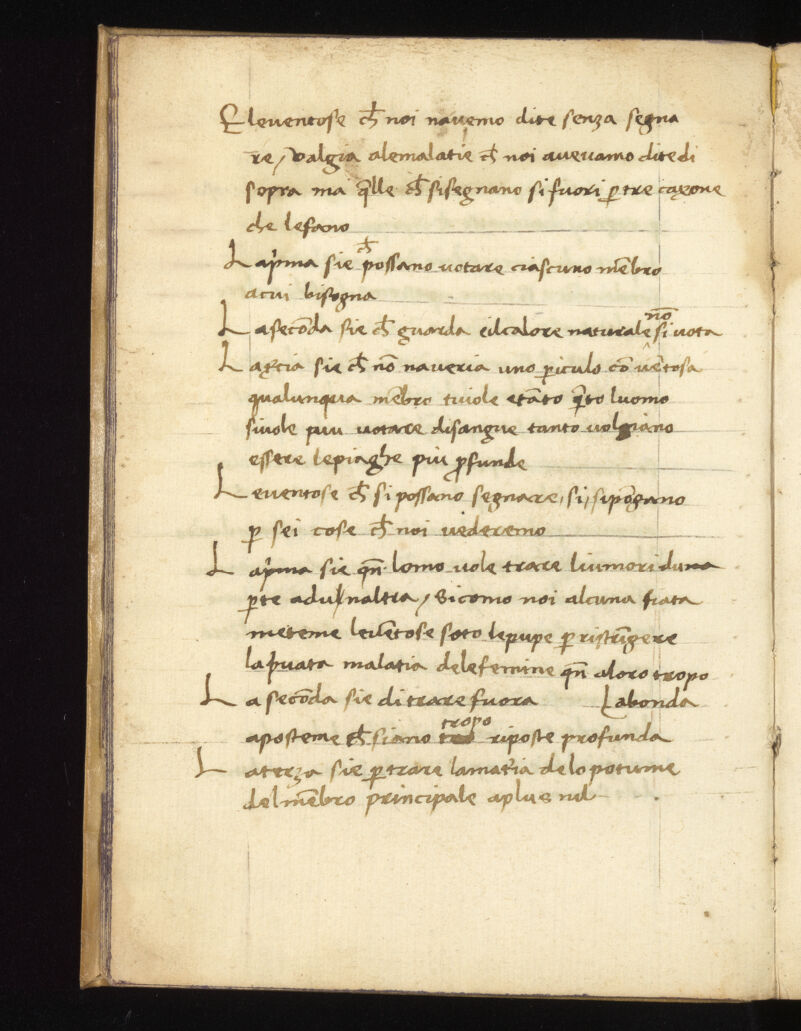 E leventose ch̄ noi navemo dite senza segna
re / valgia alemalatie ch̄ noi avevamo dite di
sopra ma q̄lle ch̄ sisegnano si fuori ꝑ tre caxone
che lefano
L a p̄ma sie ch̄ possano votare ciascuno mēbro
acui bisogna
L a secōda sie ch̄ guarda eilcalore naturale nō si vota
L a t̄cia sie ch̄ nō naveria uno ꝑiculo cō vētosa
qualunqua mēbro tuiole etāto q̄to luomo
sivole puu votare disangue tanto volgiano
essere lepiaghe piu ꝓfunde
L eventose ch̄ si possano segnare / si / sipōgano
ꝑ sei cose ch̄ noi vederemo
L a p̄ma sie qn̄ lomo vole trare liumori duna
ꝑte adu naltra / Sicomo noi alcuna fiata
meteme levētose soto lepupe ꝑ ristrīgere
la p̄vata malatia delefemine qn̄ aloro tropo
L a secōda sie di trare fuora Labonda
aposteme ch̄ siano tropo riposte profunda
L a terza sie ꝑ trare lamat̄ia delo potume
del mēbro principale aplus nul